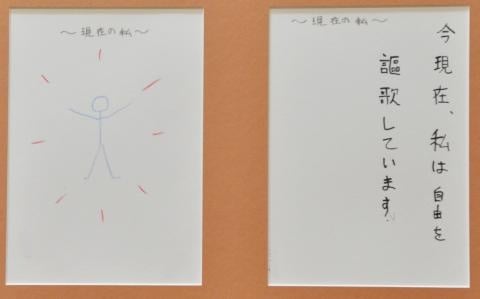 ～現在の私～
～現在の私～
今現在、私は自由を
謳歌しています。